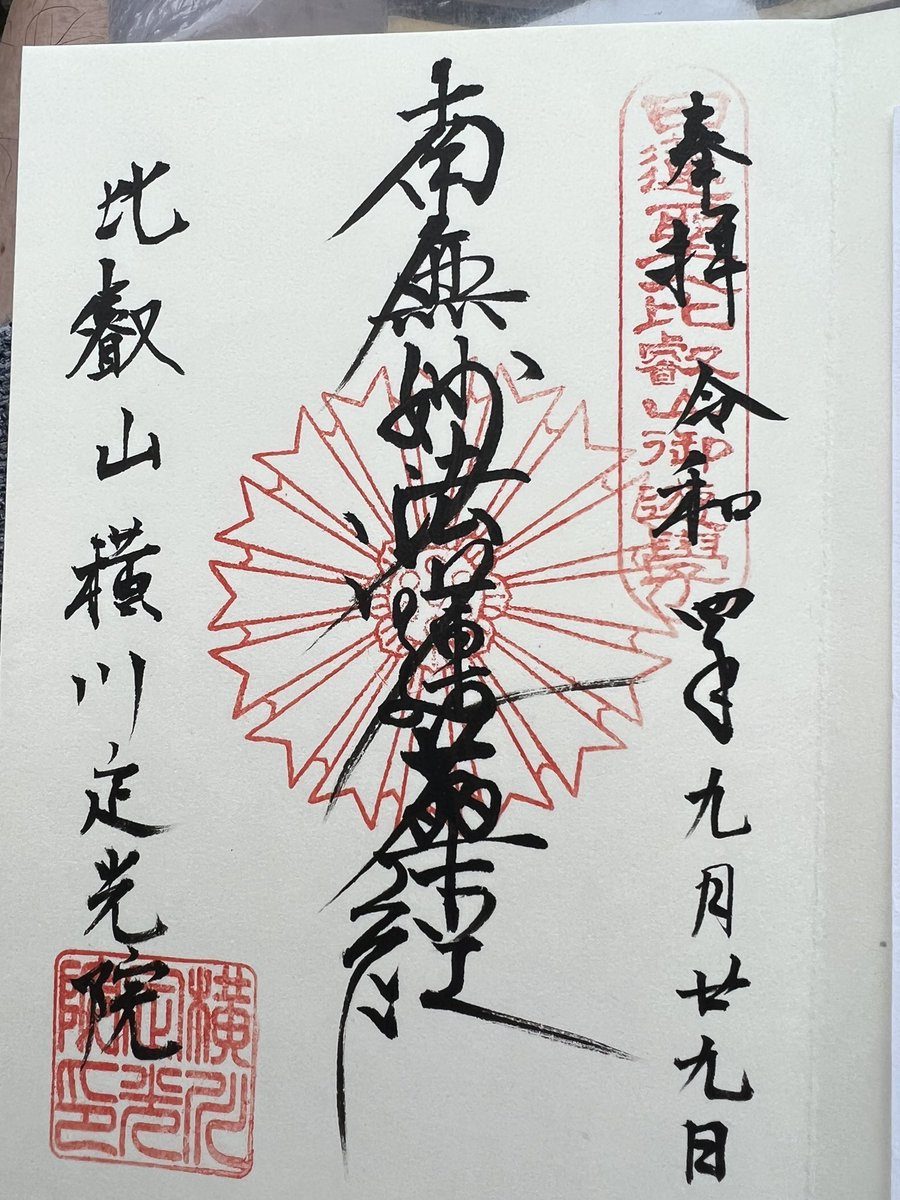 奉拝 令和四年九月廿九日
日蓮聖人比叡山御修学
南無妙法蓮華経
比叡山横川定光院
横川定光院印